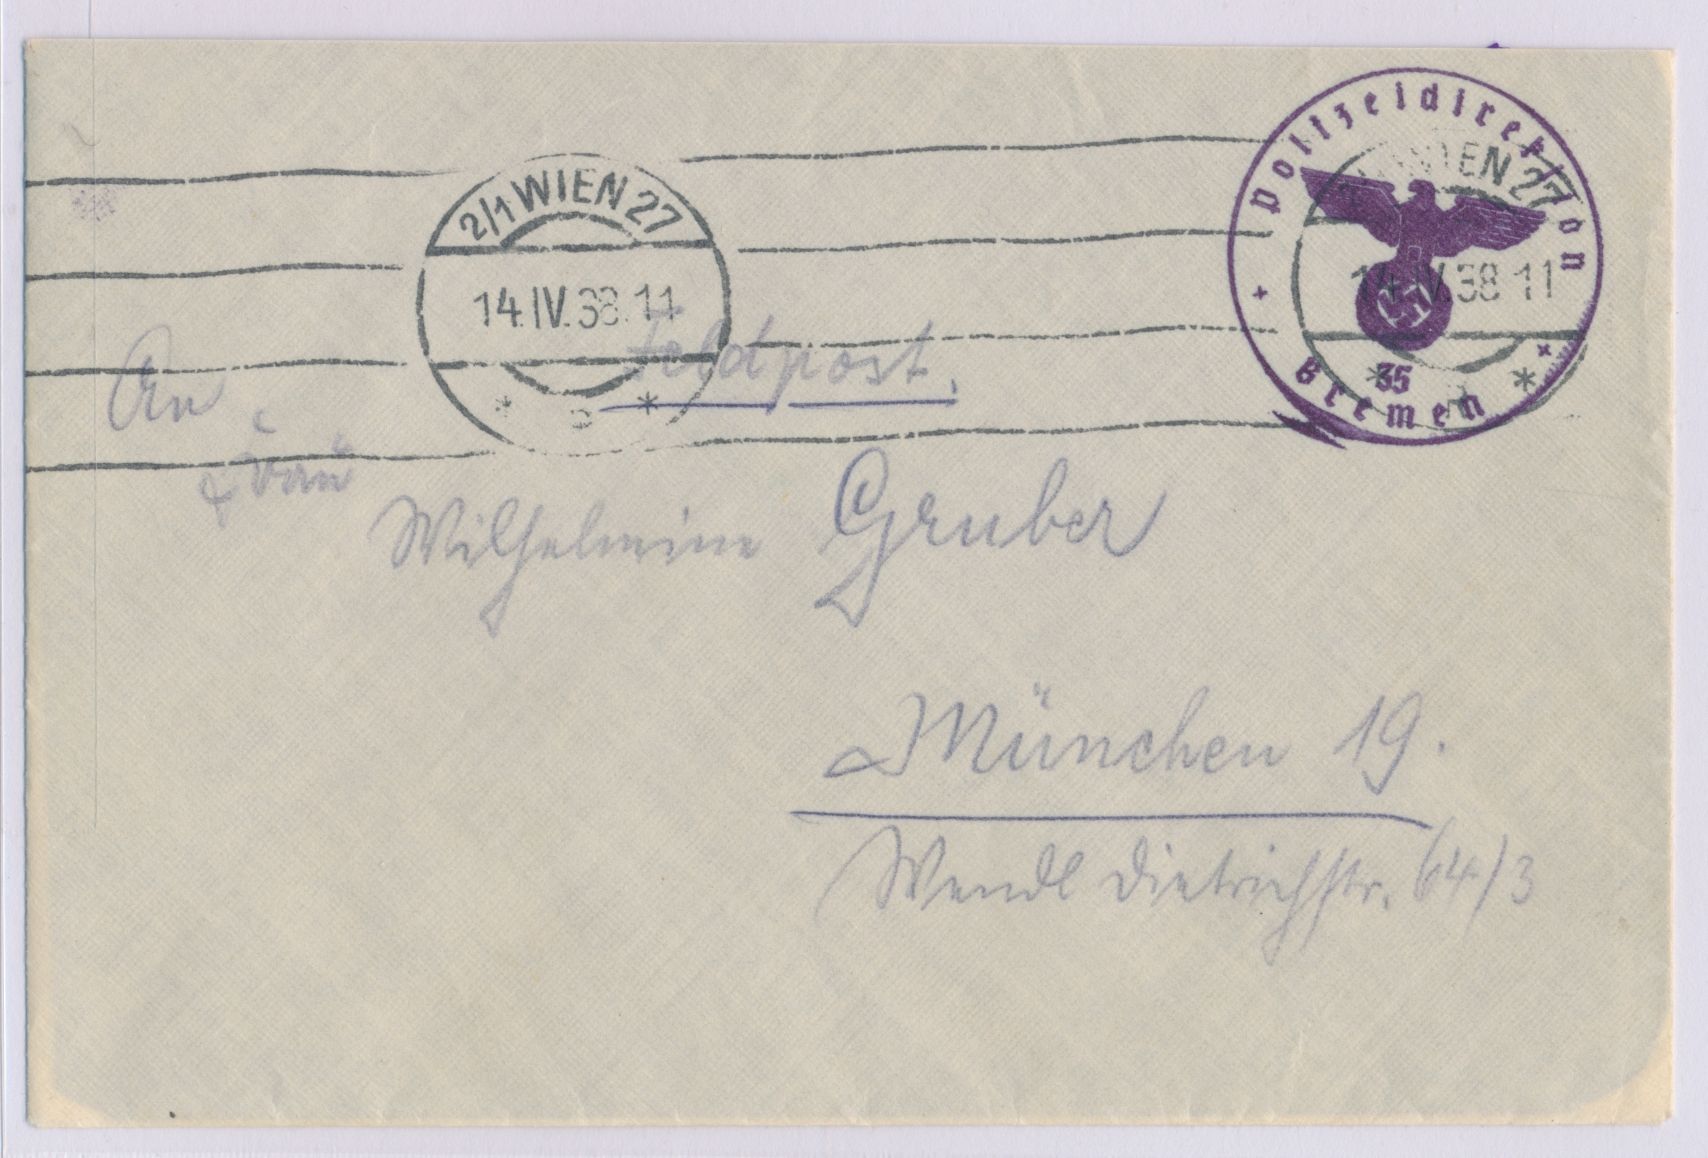 2/1 WIEN 27
14.IV.38.11
* B *
Polizeidirektion
Bremen
35
WIEN 27
14.IV.38 11
Feldpost.
An
Frau
Wilhelmine Gruber
München 19.
Wendl Dietrichstr. 64/3